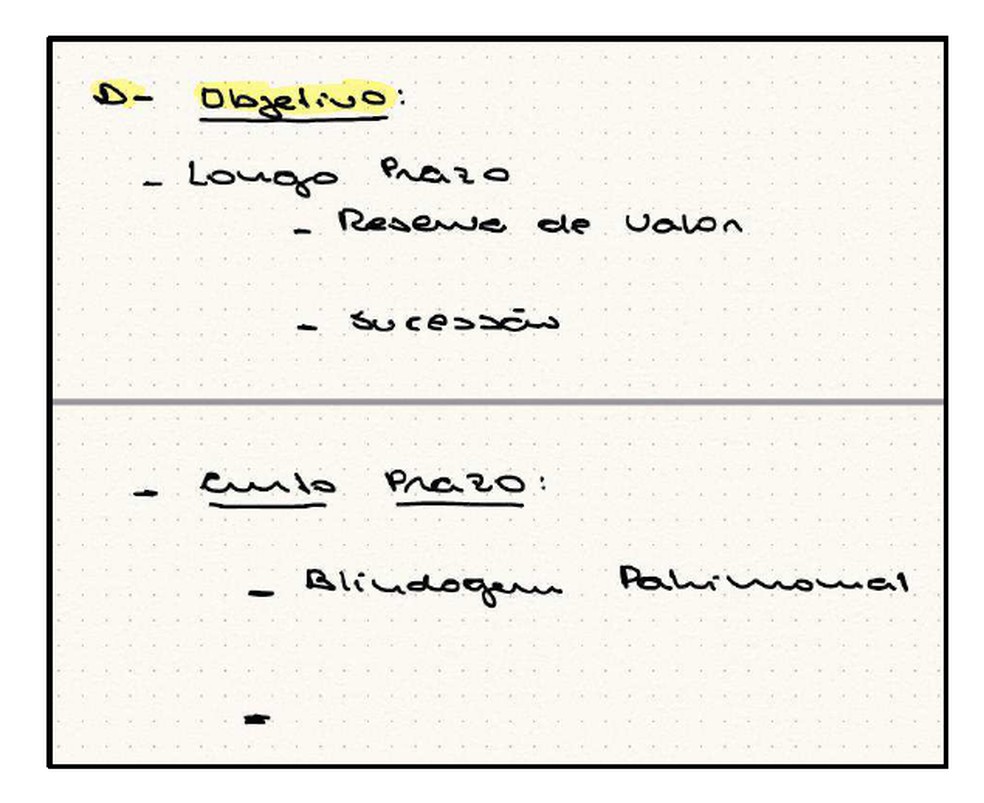 D- Objetivo:
- Longo Prazo
- Reserva de Valor
- Sucessão
- Curto Prazo:
- Blindagem Patrimonial
-